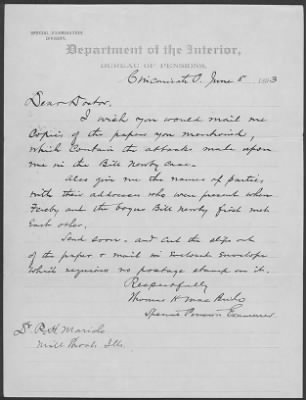 SPECIAL EXAMINATION
DIVISION.
Department of the Interior,
BUREAU OF PENSIONS,
Cincinnati O. June 8 1893
Dear Doctor.
I wish you would mail me
Copies of the papers you mentioned,
which contain the attacks made upon
me in the Bill Newby Case.
Also give me the names of parties
with their addresses who were present when
Fereby and the bogus Bill Newby first met
Each other.
Send soon. and cut the slips out
of the paper & mail in Enclosed Envelope
which requires no postage stamp on it.
Respectfully
Thomas H
Special Pension Examiner
Dr R.H. Maricle
Mill Shoals Ills.